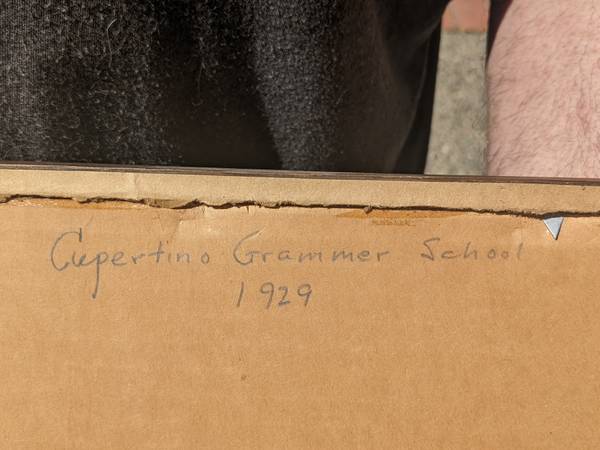 Cupertino Grammer School
1929